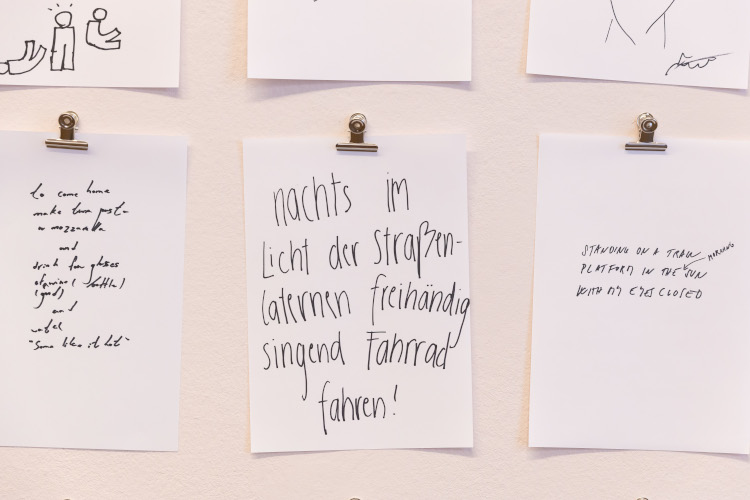 to come home
make tuna pasta
a mozzarella
and
drink four glasses
(good)
and
watch
"Some like it hot"
nachts im
Licht der Straßen-
laternen freihändig
singend Fahrrad
fahren!
STANDING ON A TRAIN
PLATFORM IN THE MORNING SUN
WITH MY EYES CLOSED